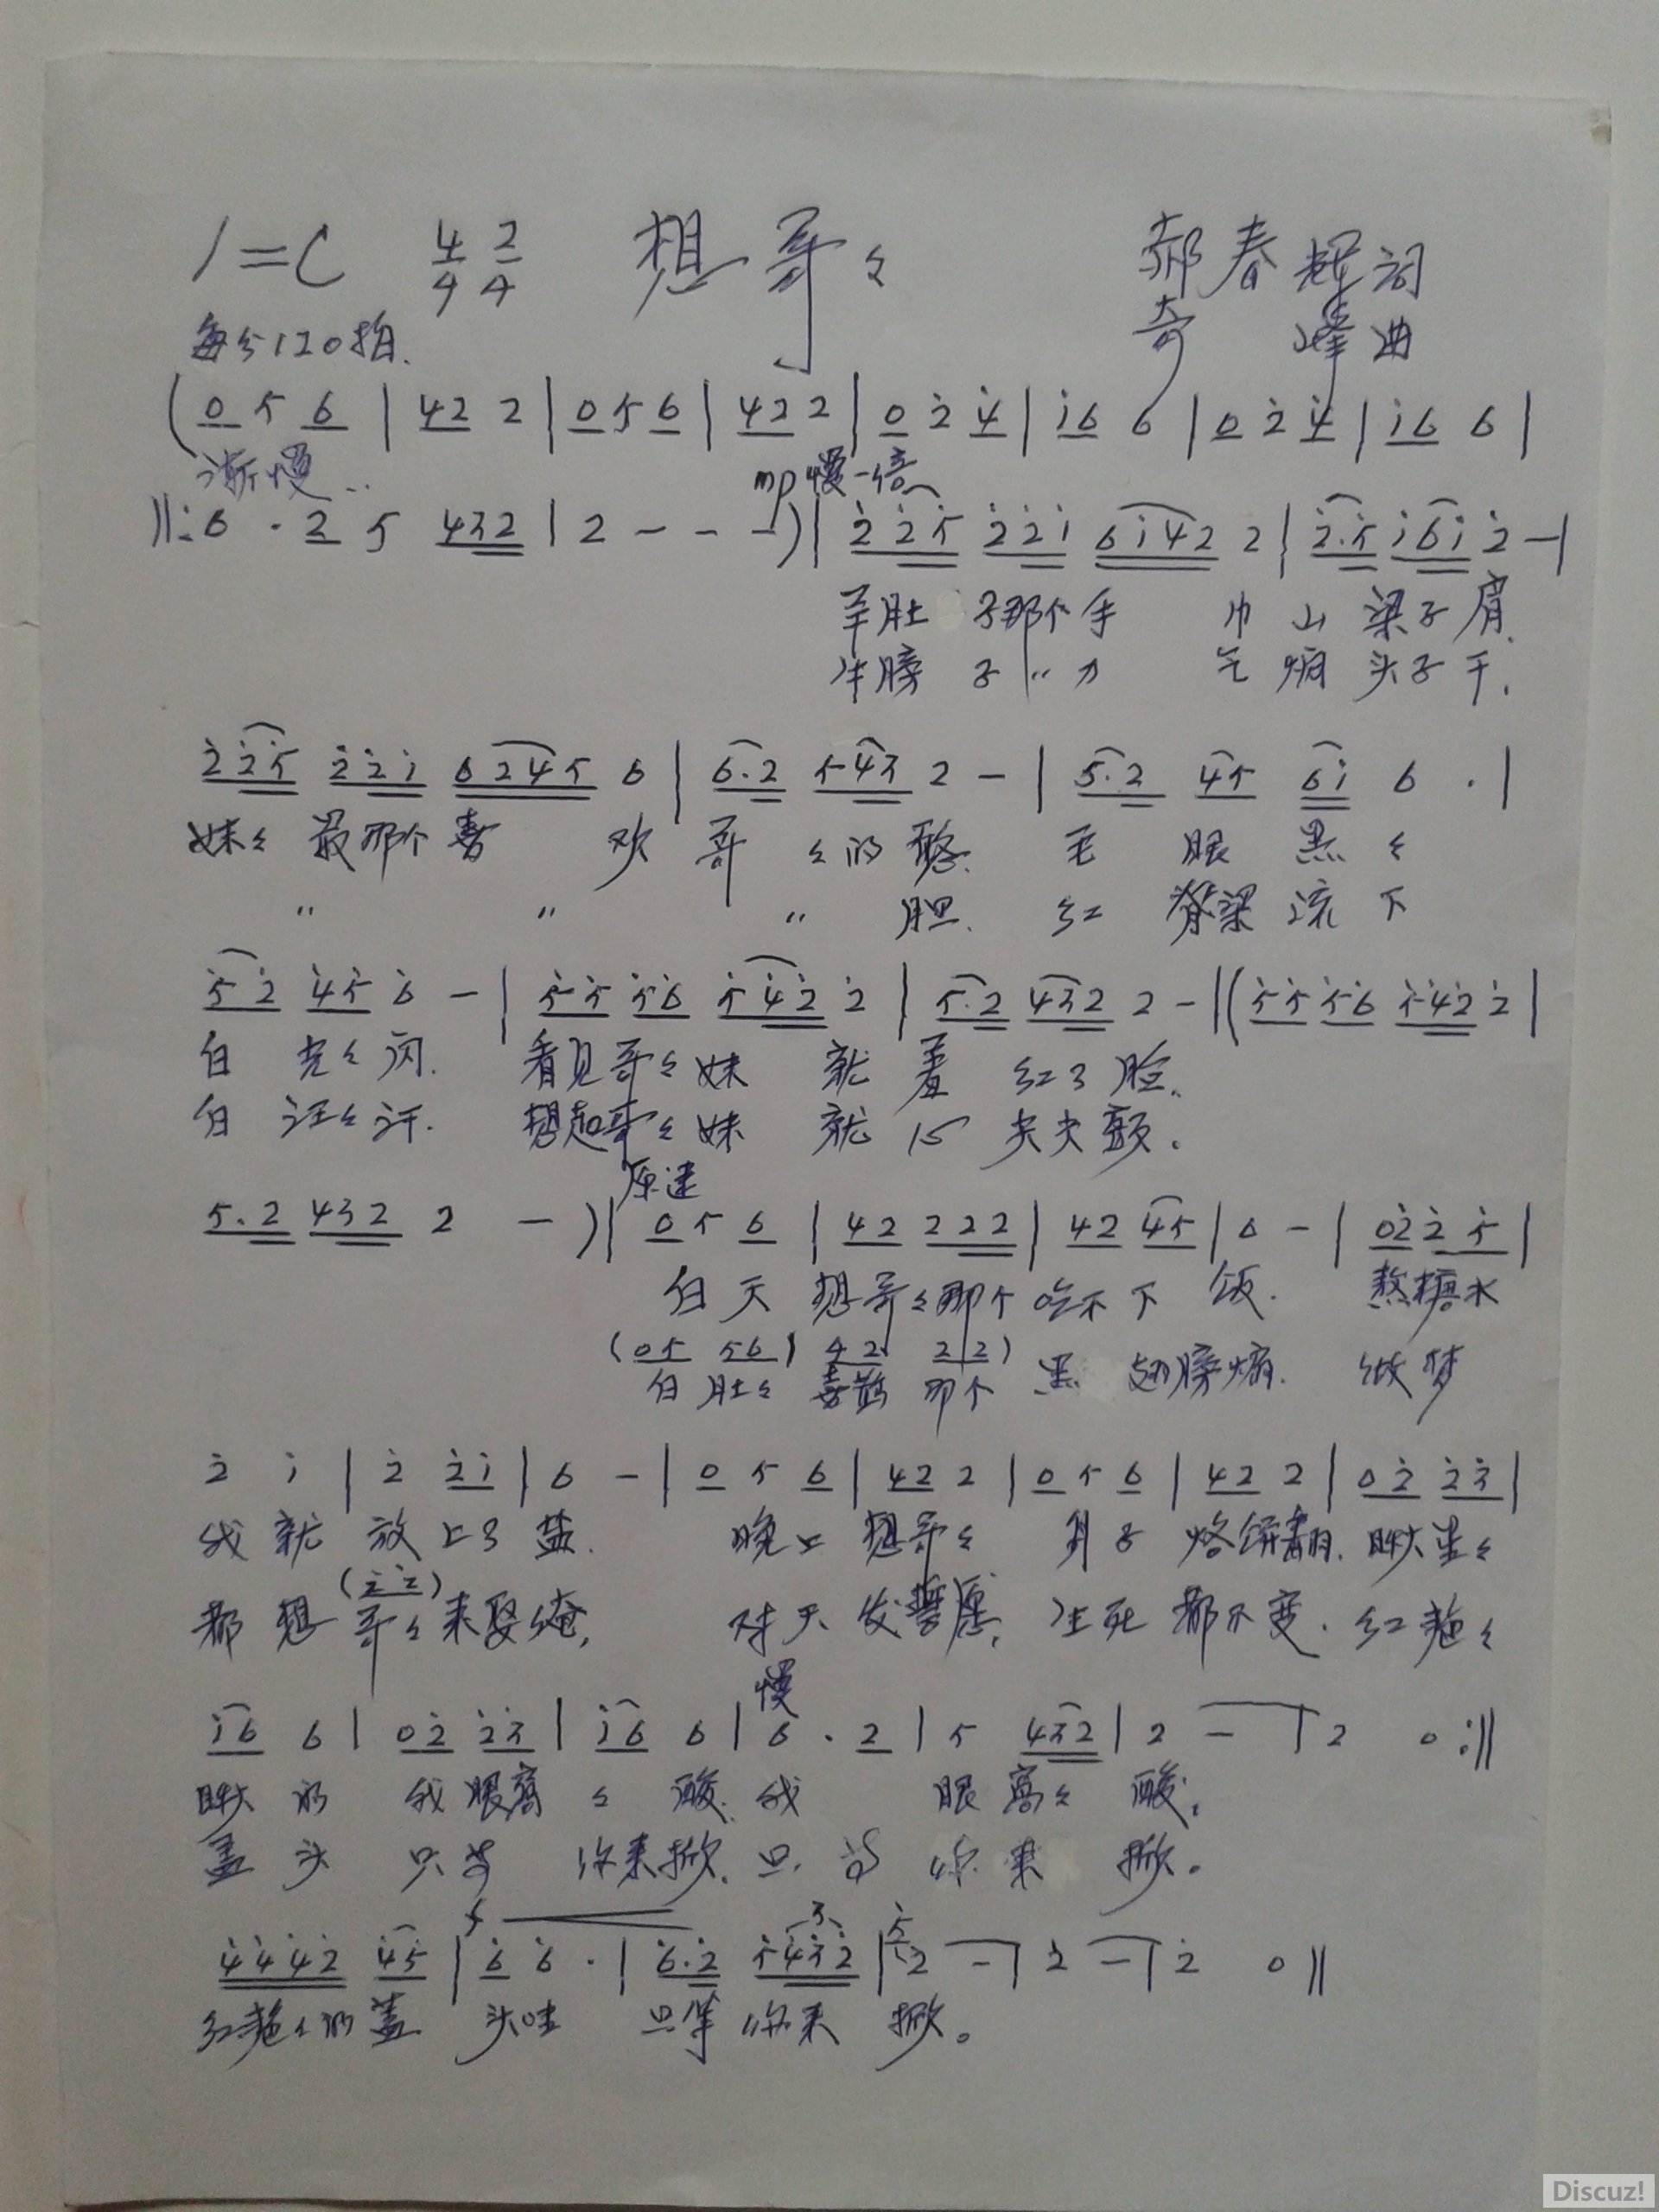 1=C 4/4 2/4 想哥〻 郝春辉词
每分120拍. 奇峰曲
(0 5 6 | 42 2 | 0 5 6 | 42 2 | 0 2̇ 4̇ | i6 6 | 0 2̇ 4̇ | i6 6 |
渐慢.. mp慢一倍
‖: 6 · 2 5 432 | 2 - - -) | 2̇2̇5̇ 2̇2̇i 6i42 2 | 2̇.5̇ i6i 2̇ - |
羊肚子那个手巾山梁子肩.
膀子〃力气 头子干.
2̇2̇5̇ 2̇2̇i 6245 6 | 6.2 543 2 - | 5.2 45 6i 6 · |
妹〻最那个喜欢哥〻的憨. 毛眼黑〻
〃 〃 〃 胆. 红脊梁流下
5̇2̇ 4̇5̇ 6̇ - | 5̇5̇ 5̇6̇ 5̇4̇2̇ 2̇ | 5.2 432 2 - ‖ (5̇5̇ 5̇6̇ 5̇4̇2̇ 2̇ |
白光〻闪. 看见哥〻妹就羞红了脸.
白汪〻汗. 想起哥〻妹就心尖尖颤.
原速
5.2 432 2 -) | 0 5 6 | 42 222 | 42 45 | 6 - | 02̇ 2̇ 5̇ |
白天想哥〻那个吃不下饭. 熬糖水
(05 56 | 42 22)
白肚〻喜鹊那个黑翅膀煽. 做梦
2̇ i | 2̇ 2̇i | 6 - | 0 5 6 | 42 2 | 0 5 6 | 42 2 | 02̇ 2̇3̇ |
我就放上了盐. 晚上想哥〻 身子烙饼翻. 瞅星〻
(2̇2̇)
都想哥〻来娶俺, 对天发誓愿, 生死都不变. 红艳〻
慢
i6 6 | 02̇ 2̇3̇ | i6 6 | 6 · 2 | 5 432 | 2 - | 2 0 :‖
瞅的我眼窝〻酸. 我眼窝〻酸.
盖头只等你来掀. 只等你来掀。
f 3
4̇4̇4̇2̇ 4̇5̇ | 6̇ 6̇ · | 6̇.2̇ 5̇4̇3̇2̇ | 5̇ 2̇ - | 2̇ - | 2̇ 0 ‖
红艳〻的盖头哇 只等你来掀。
Discuz!